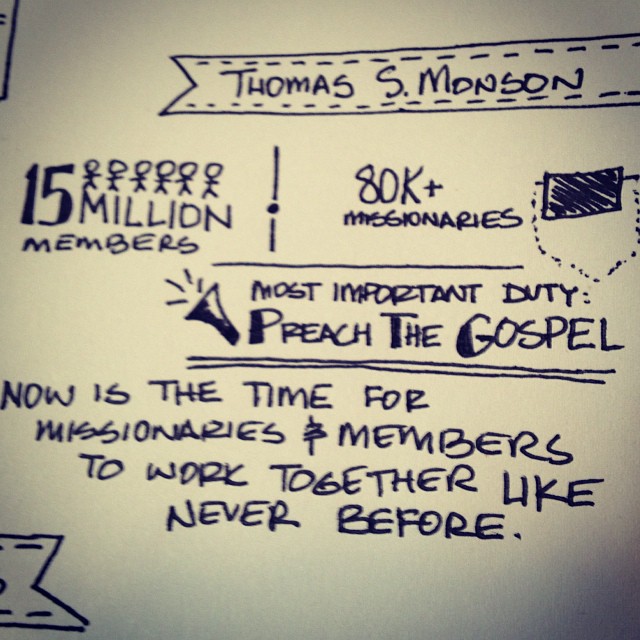 THOMAS S. MONSON
15 MILLION
MEMBERS
80K+
MISSIONARIES
MOST IMPORTANT DUTY:
PREACH THE GOSPEL
NOW IS THE TIME FOR
MISSIONARIES & MEMBERS
TO WORK TOGETHER LIKE
NEVER BEFORE.